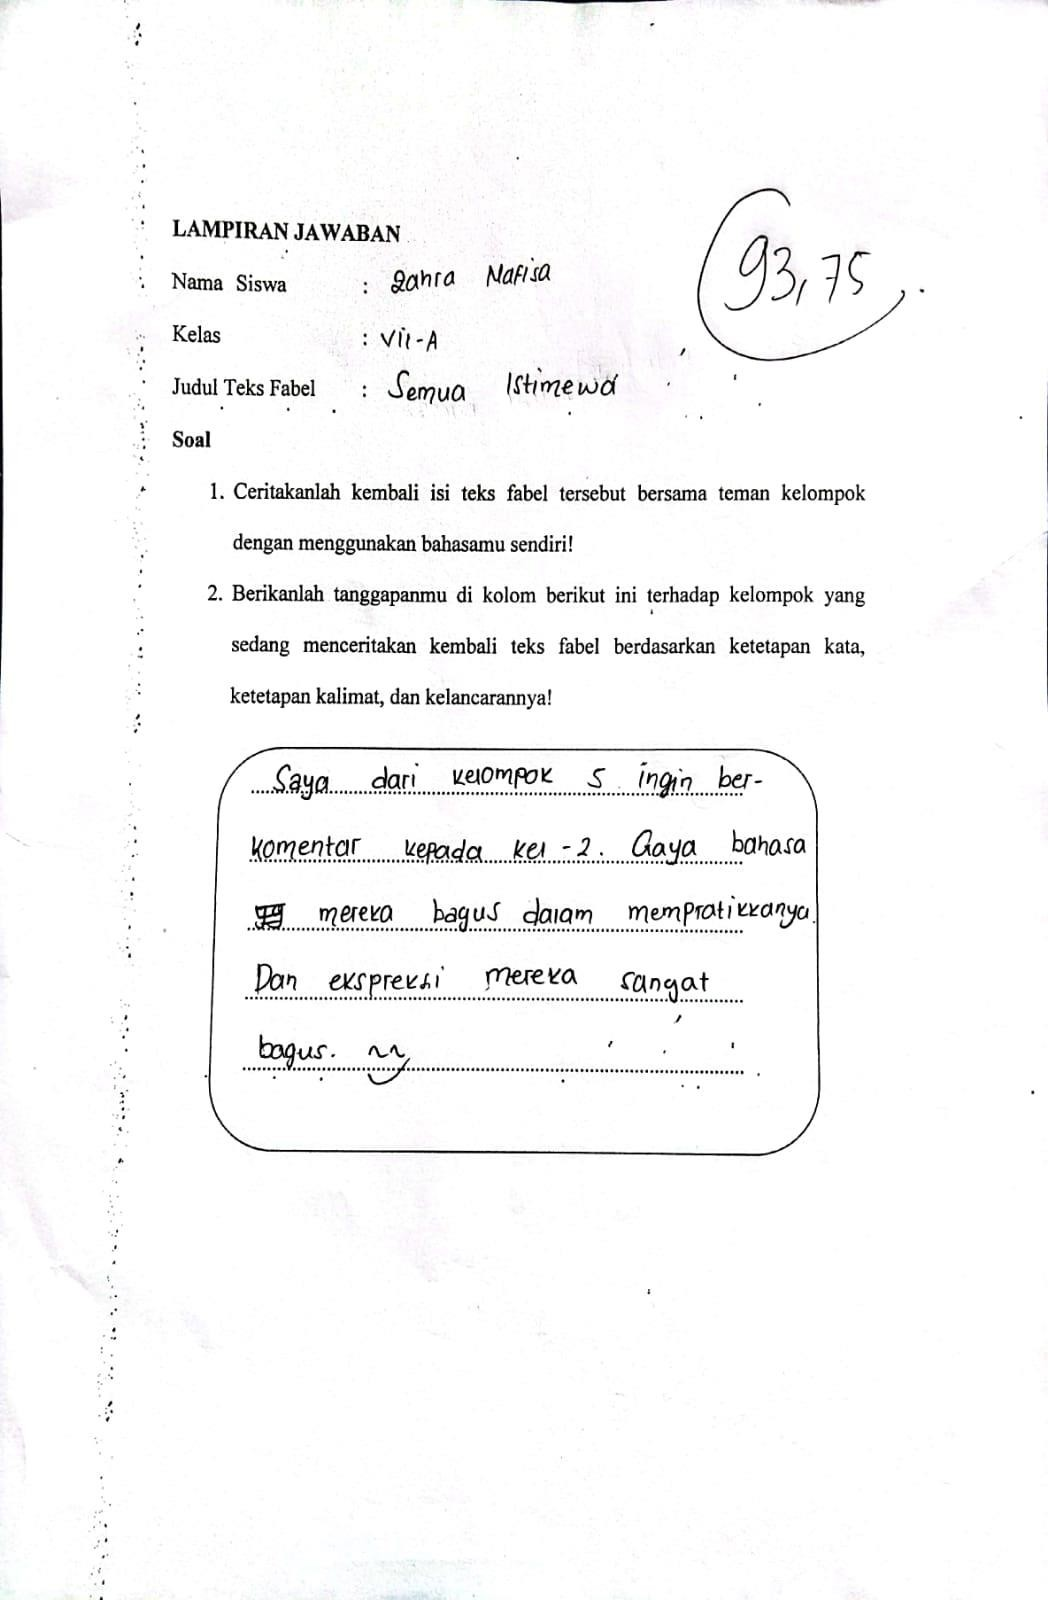 LAMPIRAN JAWABAN
93,75
Nama Siswa : Zahra Nafisa
Kelas : VII-A
Judul Teks Fabel : Semua Istimewa
Soal
1. Ceritakanlah kembali isi teks fabel tersebut bersama teman kelompok
dengan menggunakan bahasamu sendiri!
2. Berikanlah tanggapanmu di kolom berikut ini terhadap kelompok yang
sedang menceritakan kembali teks fabel berdasarkan ketetapan kata,
ketetapan kalimat, dan kelancarannya!
Saya dari kelompok 5 ingin ber-
komentar kepada kel -2. Gaya bahasa
mereka bagus dalam mempratikkanya.
Dan ekspreksi mereka sangat
bagus.